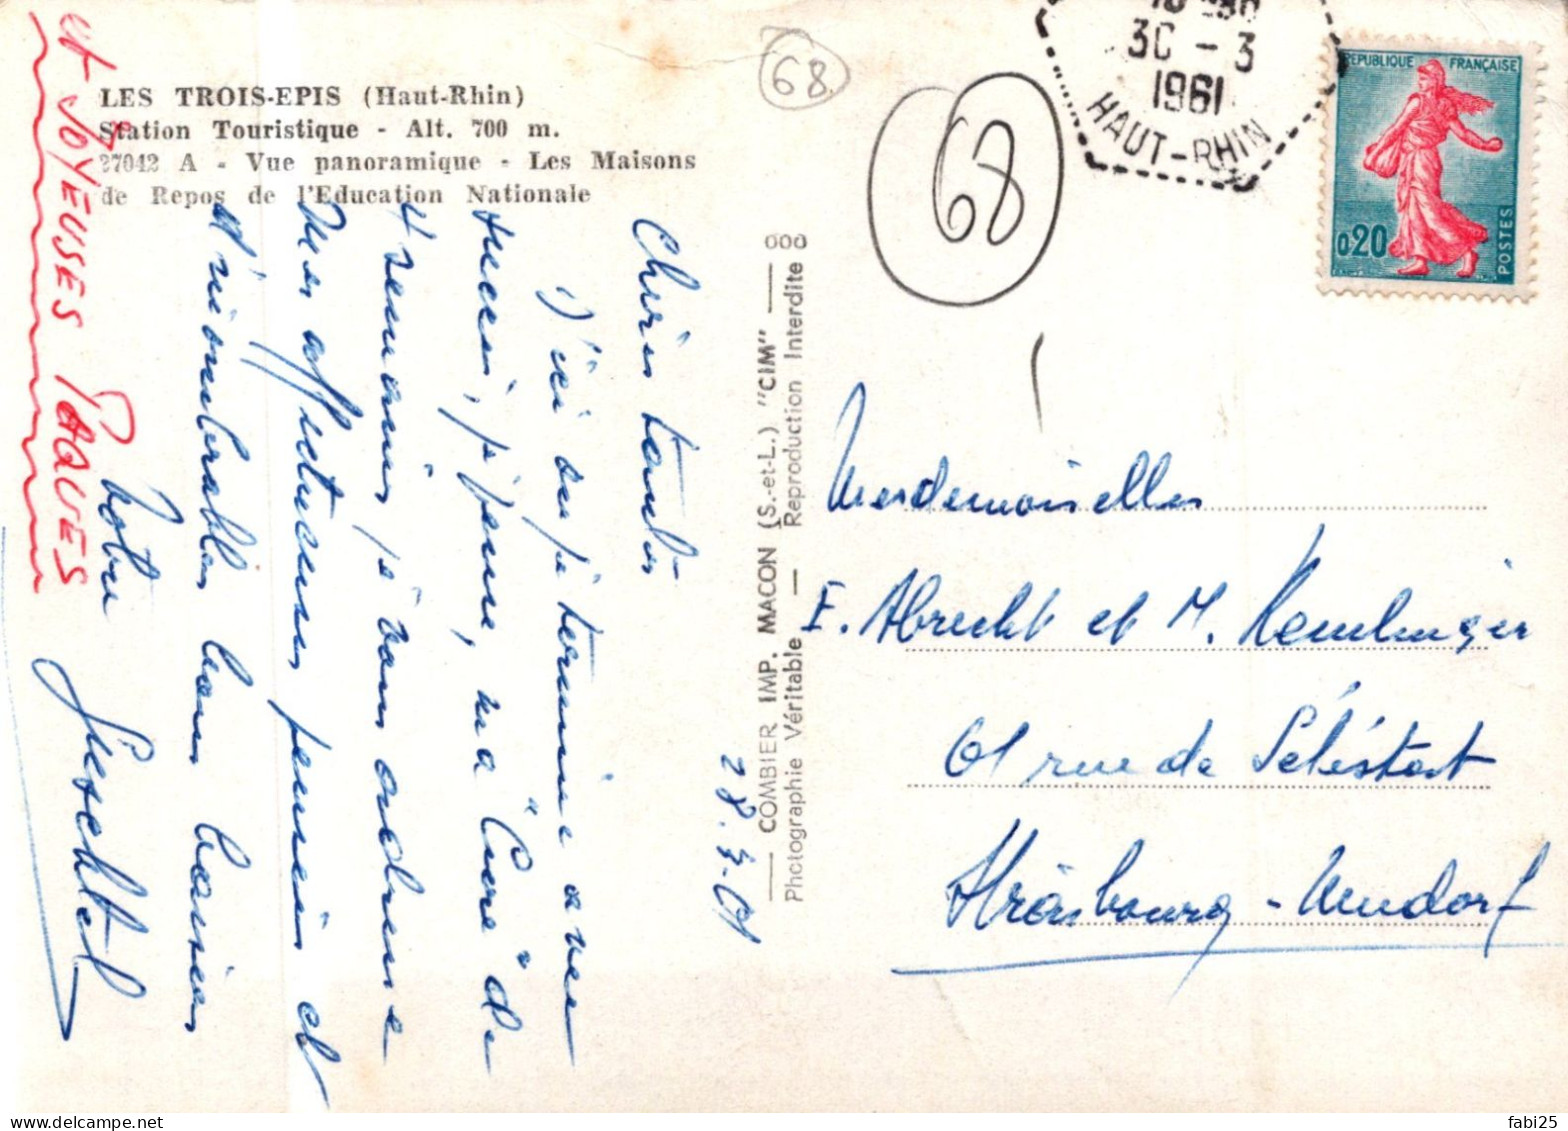 LES TROIS-EPIS (Haut-Rhin)
Station Touristique - Alt. 700 m.
27042 A - Vue panoramique - Les Maisons
de Repos de l'Education Nationale
68
68
30 - 3
1961
HAUT-RHIN
REPUBLIQUE FRANÇAISE
0,20
POSTES
28.3.61
D'ici où je termine avec
succès, je pense, ma "Cure" de
4 semaines je vous adresse
mes affectueuses pensées et
d'innombrables bons baisers
Votre
et JOYEUSES PAQUES
COMBIER IMP. MACON (S.-et-L.) "CIM"
Photographie Véritable — Reproduction Interdite
Mesdemoiselles
E. Abrecht et M.
61 rue de Sélestat
Strasbourg - Neudorf
fabi25